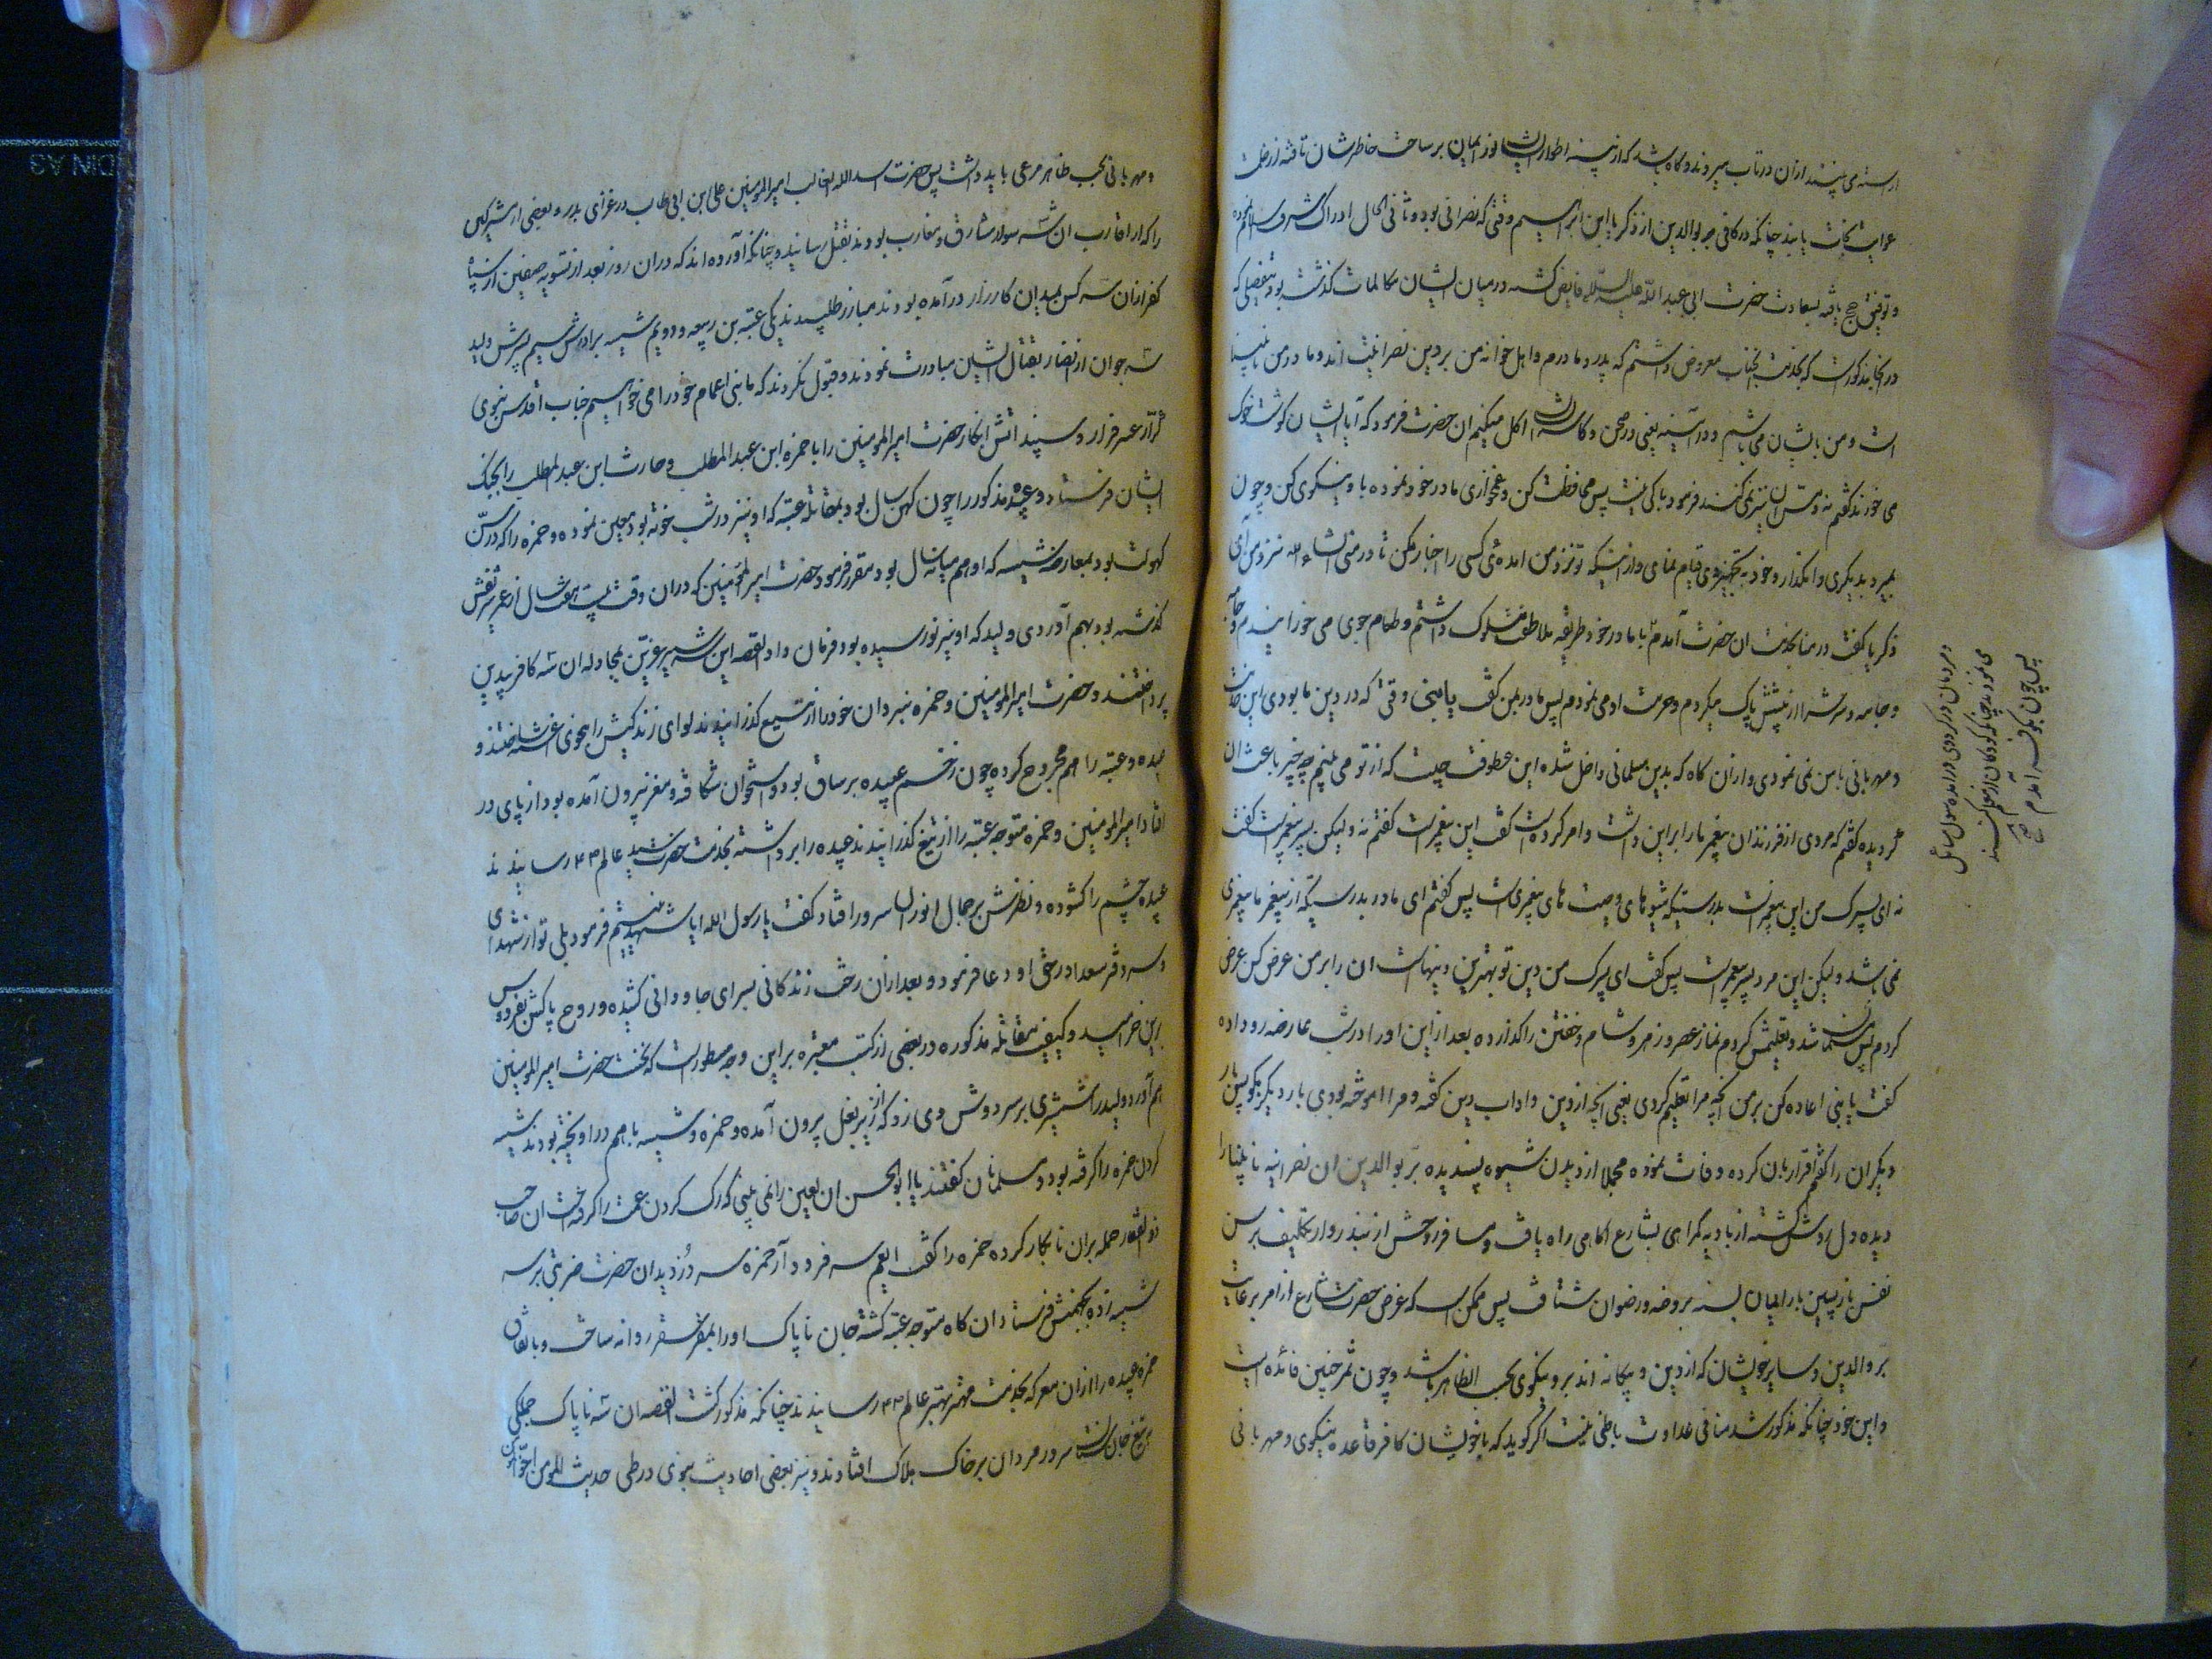 عوایت نجات یابند چنانکه در کافی در بر بوالدین از ذکریا ابن ابراهیم وقتی که نصرانی بود و ثانی الحال ادراک شرف اسلام نموده
و توفیق حج یافته بسعادت حضرت ابی عبد الله علیه السلام فایض کشته در میان ایشان مکالمات گذشته بود بتفصیلی که
در انجا مذکورست که بخدمت انجناب معروض داشتم که پدر و مادرم و اهل خوانه من بر دین نصرانیت اند و مادر من نابینا
است و من با ایشان می باشم و در آنیه یعنی در صحن و کاسه ایشان اکل میکنم ان حضرت فرمود که آیا ایشان کوشت خوک
می خورند گفتم نه و مس ان نیز نمی کنند فرمود باکی نیست پس محافظت کن و غمخواری مادر خود نموده با او نیکوی کن و چون
بمیرد بدیکری وامکذار و خود به تجهیز وی قیام نمای و از اینکه تو نزد من امده ای کسی را اخبار مکن تا در منی انشاء الله نزد من آی
ذکریا کفت در منا بخدمت ان حضرت آمدم با مادر خود طریقه ملاطفت سلوک داشتم و طعام جوی می خورانیدم و جامه
و جامه و سرش را از شپش پاک میکردم و خدمت او می نمودم پس مادر بمن کفت یا بنی وقتی که در دین ما بودی این خدمت
و مهربانی با من نمی نمودی و از ان کاه که بدین مسلمانی داخل شده این عطوفت چیست که از تو می بینم چه چیز باعث ان
گردیده گفتم که مردی از فرزندان پیغمبر ما را بر این داشت و امر کرده است کفت این پیغمبر است کفتم نه ولیکن پسر پیغمبر است کفت
نه ای پسرک من این پیغمبر است بدرستیکه شیوهای وصیت های پیغمبری است پس کفتم ای مادر بدرستیکه از پیغمبر ما پیغمبری
نمی باشد ولیکن این مرد پسر پیغمبر است پس کفت ای پسرک من دین تو بهترین دینهاست ان را بر من عرض کن عرض
کردم پس مسلمان شد و تعلیمش کردم نماز عصر و زهر و شام و خفتن را کذارده بعد از این او را در شب عارضه رو داده
کفت یا بنی اعاده کن بر من انچه مرا تعلیم کردی یعنی انچه از دین و اداب دین کفته و مرا اموخته بودی بار دیکر بکو پس بار
دیکر ان را کفتم اقرار بان کرده وفات نموده مجملا از دیدن شیوه پسندیده بر بوالدین ان نصرانیه نابینا را
دیده دل روشن کشته از بادیه کمراهی بشارع اکاهی راه یافت و مسافر روحش از بند
نفس بازپسین بار ایمان بسته بروضه رضوان شتافت پس ممکن است که غرض حضرت شارع از امر برعایت
بر والدین و سایر خویشان که از دین بیکانه اند بر و نیکوی بحسب الظاهر باشد و چون ثمر چنین فائده است
و این خود چنانکه مذکور شد منافی عداوت باطنی نیست اکر کوید که با خویشان کافر قاعده نیکوی و مهربانی
پس چون بکوفه آمدم
و مهربانی بحسب ظاهر مرعی باید داشت پس حضرت اسد الله الغالب امیر المومنین علی ابن ابی طالب در غزای بدر بعضی از مشرکین
را که از اقارب ان شه سوار مشارق و مغارب بودند بقتل رسانید چنانکه آورده اند که در ان روز بعد از تسویه صفین از سپاه
کفر از ان سه کس بمیدان کارزار درآمده بودند مبارز طلبیدند یکی عتبه بن ربیعه و دویم شیبه برادرش سیم پسرش ولید
سه جوان از انصار بقتال ایشان مبادرت نمودند و قبول نکردند که ما بنی اعمام خود را می خواهیم جناب اقدس نبوی
انکار حضرت امیر المومنین را با حمزه ابن عبد المطلب و حارث ابن عبد المطلب را بجنک
ایشان فرستاد و عبیده مذکور را چون کهن سال بود بمقاتله عتبه که او نیز در شب خوخته بود معین نموده و حمزه را که در سن
کهولت بود بمعارضه شیبه که او هم میانه سال بود مقرر فرمود حضرت امیر المومنین که در ان وقت بیست هفت سال از عمر شریفش
گذشته بود بهم آوردی ولید که او نیز نورسیده بود فرمان داد القصه این سه شیر عرین بمجادله ان سه کافر بیدین
پرداختند و حضرت امیر المومنین و حمزه نبردان خود را از تیغ گذرانیدند لوای زندکیش را بخون اغشته ساختند و
عبیده و عتبه را هم مجروح کرده چون زخم عبیده بر ساق بود و استخوان شکافته و مغز بیرون آمده بود از پای در
افتاد امیر المومنین و حمزه متوجه عتبه را از تیغ کذرانیدند عبیده را برداشته بخدمت حضرت سید عالم رسانیدند
عبیده چشم را کشوده و نظرش بر جمال انور ان سرور افتاد کفت یا رسول الله ایا شهید نیستم فرمود بلی تو از شهدای
و سر دفتر سعدا در حق او دعا فرمود و بعد از ان رخت زندکانی بسرای جاودانی کشیده و روح پاکش بفردوس
برین خرامید و کیفیت مقاتله مذکوره در بعضی از کتب معتبره بر این وجه مسطور است که نخست حضرت امیر المومنین
هم آورد ولید را شمشیری بر سر دوش وی زد که از زیر بغل بیرون آمده و حمزه و شیبه با هم در اویخته بودند شیبه
کردن حمزه را کرفته بود و مسلمانان کفتند یا ابو الحسن ان لعین را نمی بینی که رک کردن عمت را کرفته است ان صاحب
ذو الفقار حمله بران نابکار کرده حمزه را کفت ای عم سر فرود آر حمزه سر دزدید ان حضرت ضربتی بر سر
شیبه زده بجهنمش فرستاد ان کاه متوجه عتبه کشته جان ناپاک او را بمقر سقر روانه ساخت و باتفاق
حمزه عبیده را از ان معرکه بخدمت مهتر بهتر عالم رسانیدند چنانکه مذکور کشت القصه ان سه ناپاک جملگی
بتیغ جان ستان سرور مردان بر خاک هلاک افتادند و نیز بعضی احادیث نبوی در طی حدیث المومن اخو المومن